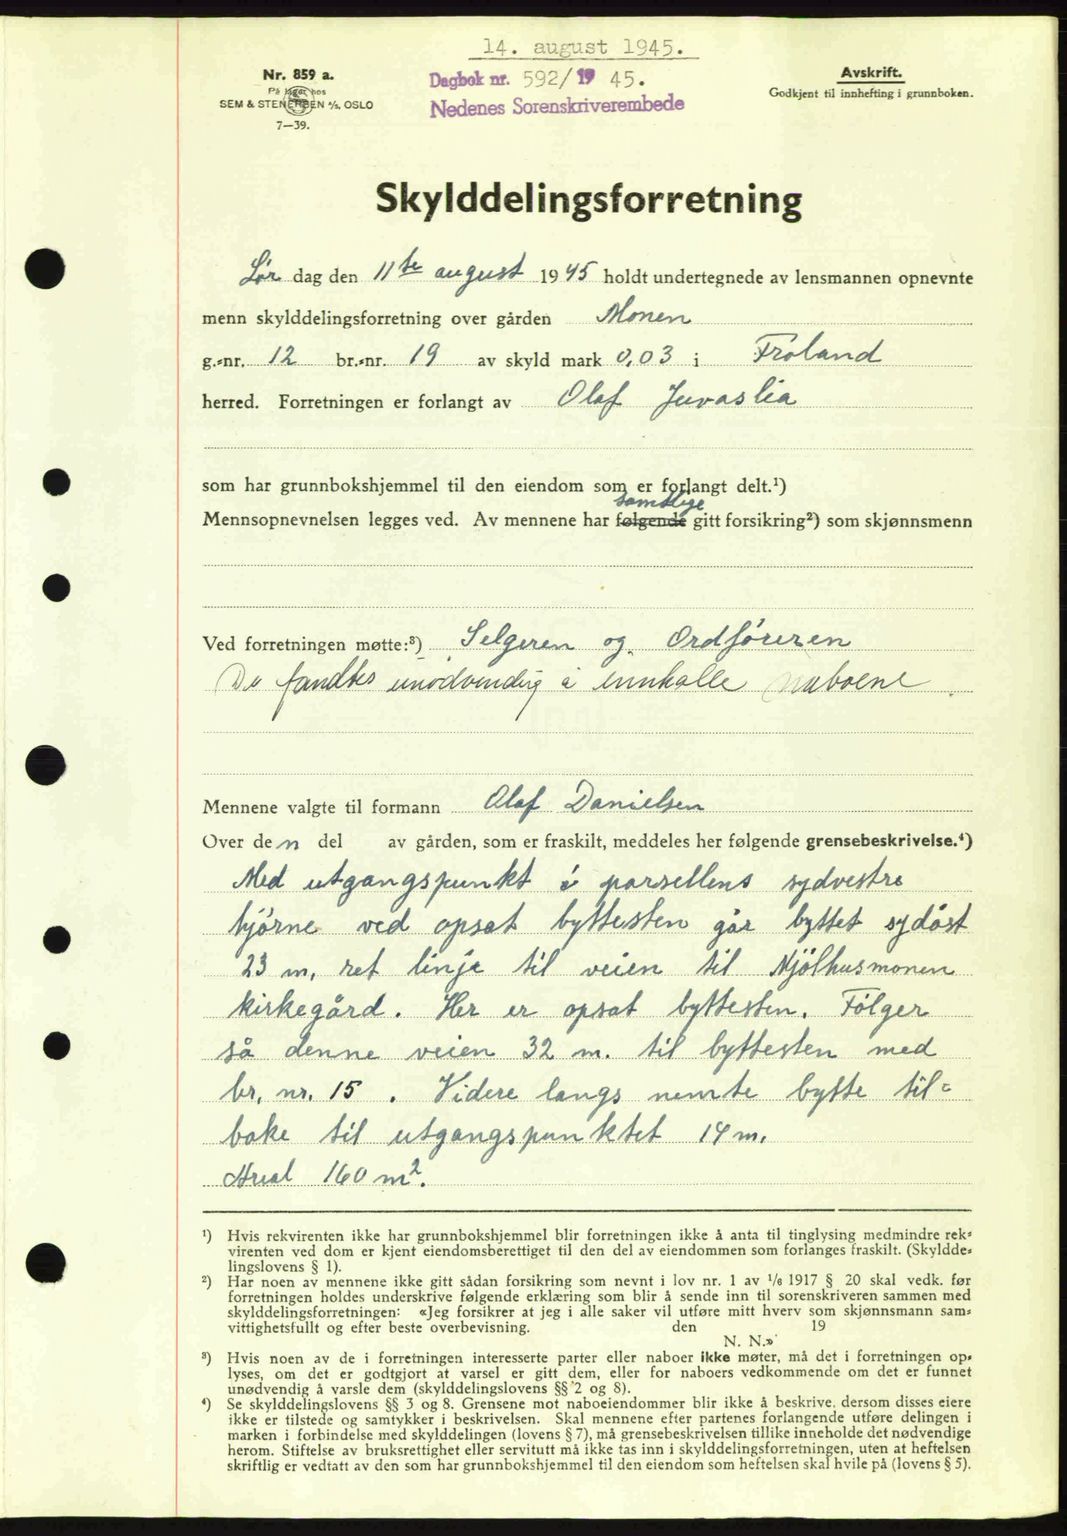 14. august 1945.
Nr. 859 a.
På lager hos
SEM & STENERSEN A/S, OSLO
7—39.
Dagbok nr. 592/19 45.
Nedenes Sorenskriverembede
Avskrift.
Godkjent til innhefting i grunnboken.
Skylddelingsforretning
Lør dag den 11te august 1945 holdt undertegnede av lensmannen opnevnte
menn skylddelingsforretning over gården Monen
g.-nr. 12 br.-nr. 19 av skyld mark 0,03 i Froland
herred. Forretningen er forlangt av Olaf Juvaslia
som har grunnbokshjemmel til den eiendom som er forlangt delt.¹)
samtlige
Mennsopnevnelsen legges ved. Av mennene har følgende gitt forsikring²) som skjønnsmenn
Ved forretningen møtte:³) Selgeren og Ordføreren
De fandtes unødvendig å innkalle naboene.
Mennene valgte til formann Olaf Danielsen
Over den del av gården, som er fraskilt, meddeles her følgende grensebeskrivelse.⁴)
Med utgangspunkt i parsellens sydvestre
hjørne ved opsat byttesten går byttet sydøst
23 m, ret linje til veien til Mjölhusmonen
kirkegård. Her er opsat byttesten. Følger
så denne veien 32 m. til byttesten med
br. nr. 15. Videre langs nemte bytte til=
bake til utgangspunktet 14 m.
Areal 160 m².
¹) Hvis rekvirenten ikke har grunnbokshjemmel blir forretningen ikke å anta til tinglysing medmindre rek-
virenten ved dom er kjent eiendomsberettiget til den del av eiendommen som forlanges fraskilt. (Skyldde-
lingslovens § 1).
²) Har noen av mennene ikke gitt sådan forsikring som nevnt i lov nr. 1 av 1/6 1917 § 20 skal vedk. før
forretningen holdes underskrive følgende erklæring som blir å sende inn til sorenskriveren sammen med
skylddelingsforretningen: «Jeg forsikrer at jeg i alle saker vil utføre mitt hverv som skjønnsmann sam-
vittighetsfullt og efter beste overbevisning. den 19
N. N.»
³) Hvis noen av de i forretningen interesserte parter eller naboer ikke møter, må det i forretningen op-
lyses, om det er godtgjort at varsel er gitt dem, eller for naboers vedkommende om det er funnet
unødvendig å varsle dem (skylddelingslovens §§ 2 og 8).
⁴) Se skylddelingslovens §§ 3 og 8. Grensene mot naboeiendommer blir ikke å beskrive, dersom disses eiere
ikke er tilstede og samtykker i beskrivelsen. Skal mennene efter partenes forlangende utføre delingen i
marken i forbindelse med skylddelingen (lovens § 7), må grensebeskrivelsen tillike inneholde det nødvendige
herom. Stiftelse av bruksrettighet eller servitutt må ikke tas inn i skylddelingsforretningen, uten at heftelsen
skriftlig er vedtatt av den som har grunnbokshjemmel til den eiendom som heftelsen skal hvile på (lovens § 5).